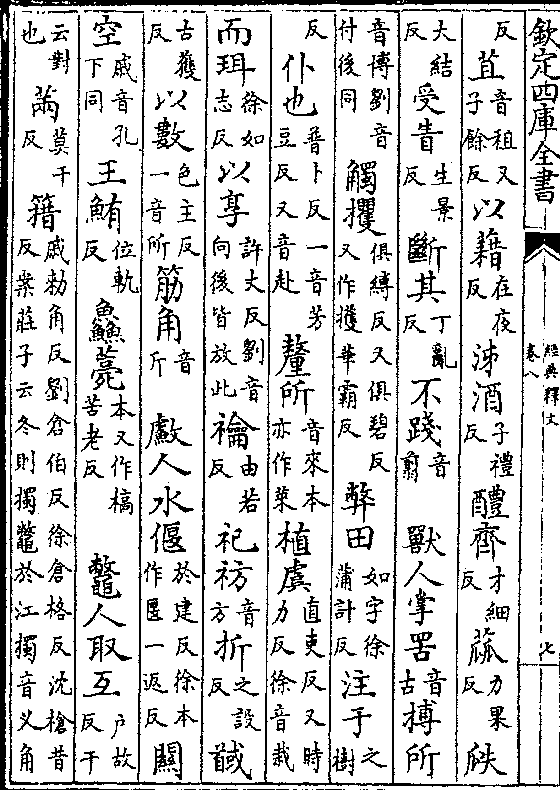 欽定四庫全書
經典釋文
卷八
七
反苴音祖又子餘反以藉在夜反泲酒子禮反醴齊才細反蓏力果反胅
大結反受眚生景反斷其丁亂反不踐音翦獸人掌罟音古搏所
音博劉音付後同觸攫俱縛反又俱碧反又作擭華霸反弊田如字徐蒲計反注于之樹
反仆也普卜反一音芳豆反又音赴釐所音來本亦作萊植虞直吏反又時力反徐音栽
而珥徐如志反以享許丈反劉音向後皆放此禴由若反祀祊音方折之設反馘
古獲反以數色主反一音所筋角音斤䱷人水偃於建反徐本作匽一返反關
空戚音孔下同王鮪位軌反鱻薧本又作槁苦老反鼈人取互戶故反干
云對也㒼莫干反籍戚勑角反劉倉伯反徐倉格反沈槍昔反案莊子云冬則擉鼈於江擉音义角